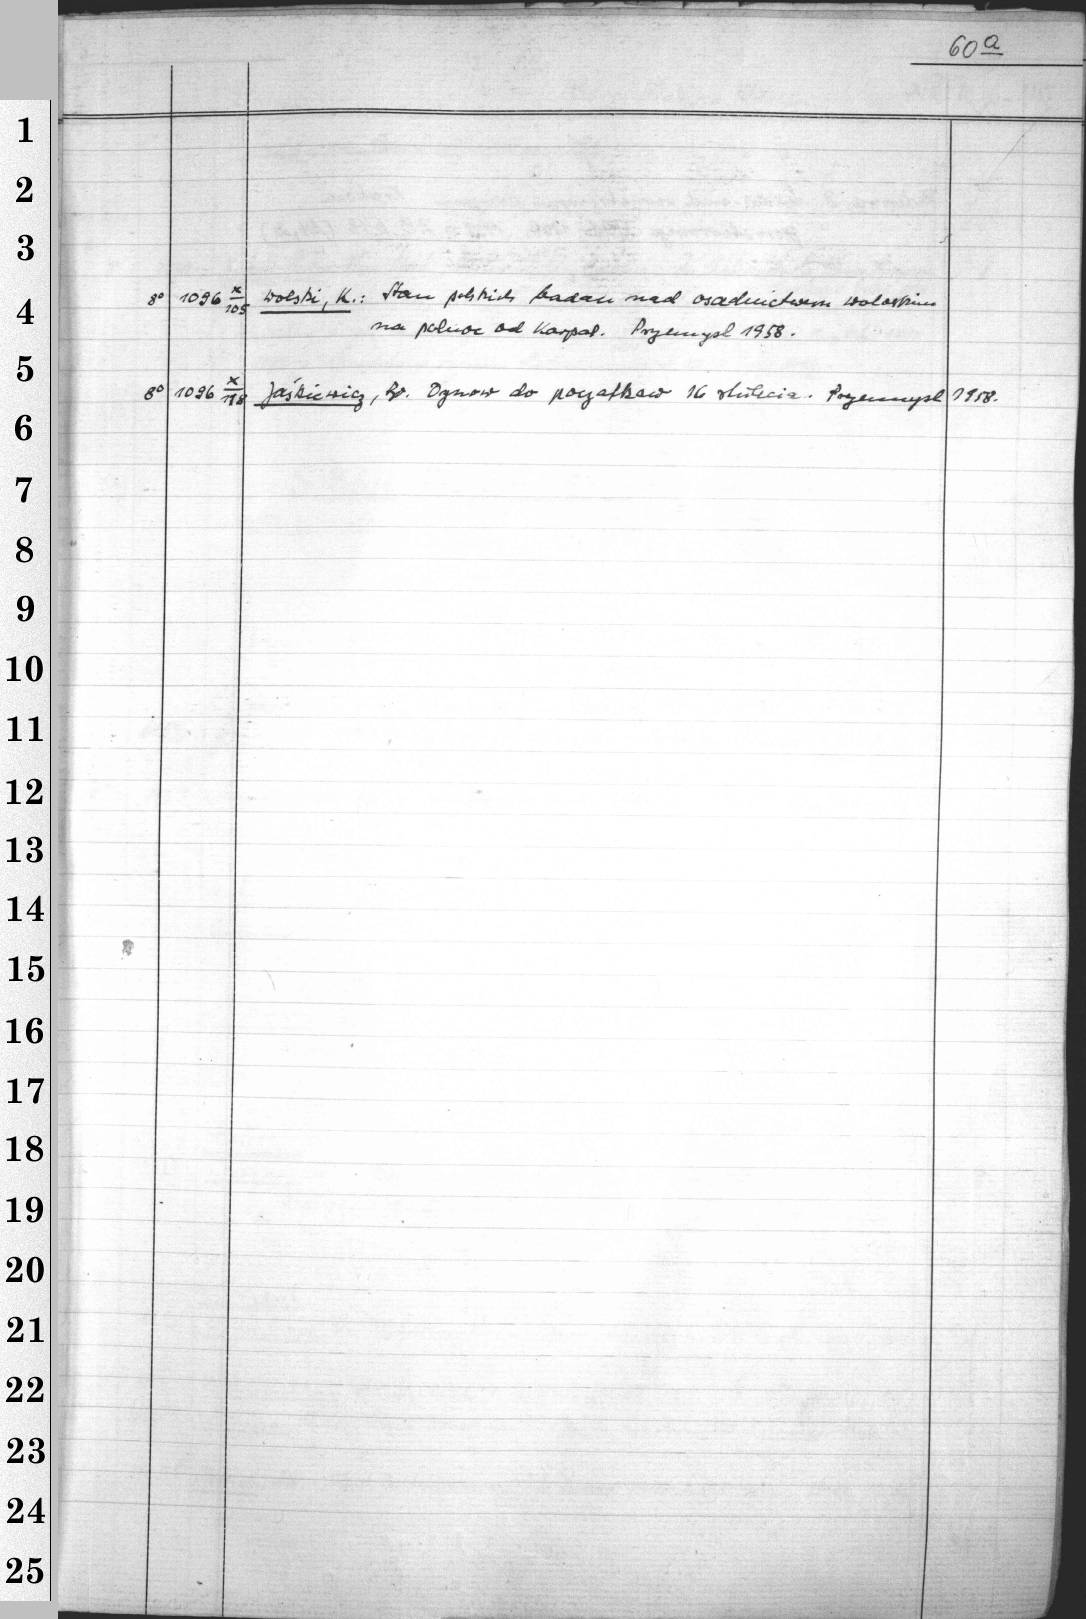 60 a
1
2
3
4
8° 1096 x/105 Wolski, K.: Stan polskich badan nad osadnictwem woloskim
na polnoc od Karpat. Przemysl 1958.
5
8° 1096 x/118 Jaśkiewicz, W. Dynow do poczatkow 16 stulecia. Przemysl 1958.
6
7
8
9
10
11
12
13
14
15
16
17
18
19
20
21
22
23
24
25